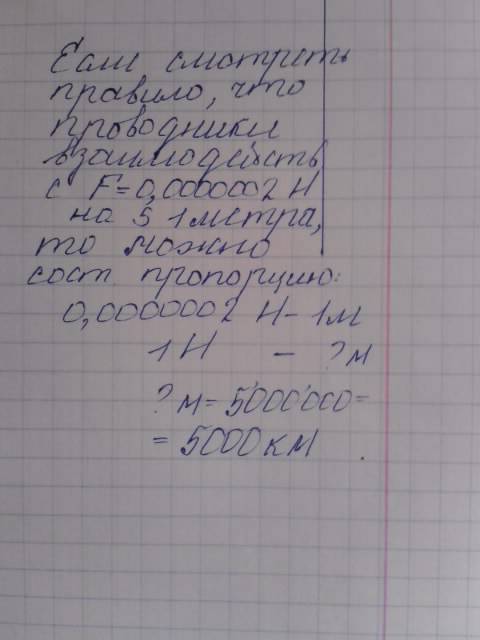 Если смотреть
правило, что
проводники
взаимодейств
с F=0,0000002 Н
на S 1 метра,
то можно
сост. пропорцию:
0,0000002 Н - 1м
1Н - ?м
?м = 5000000=
= 5000км